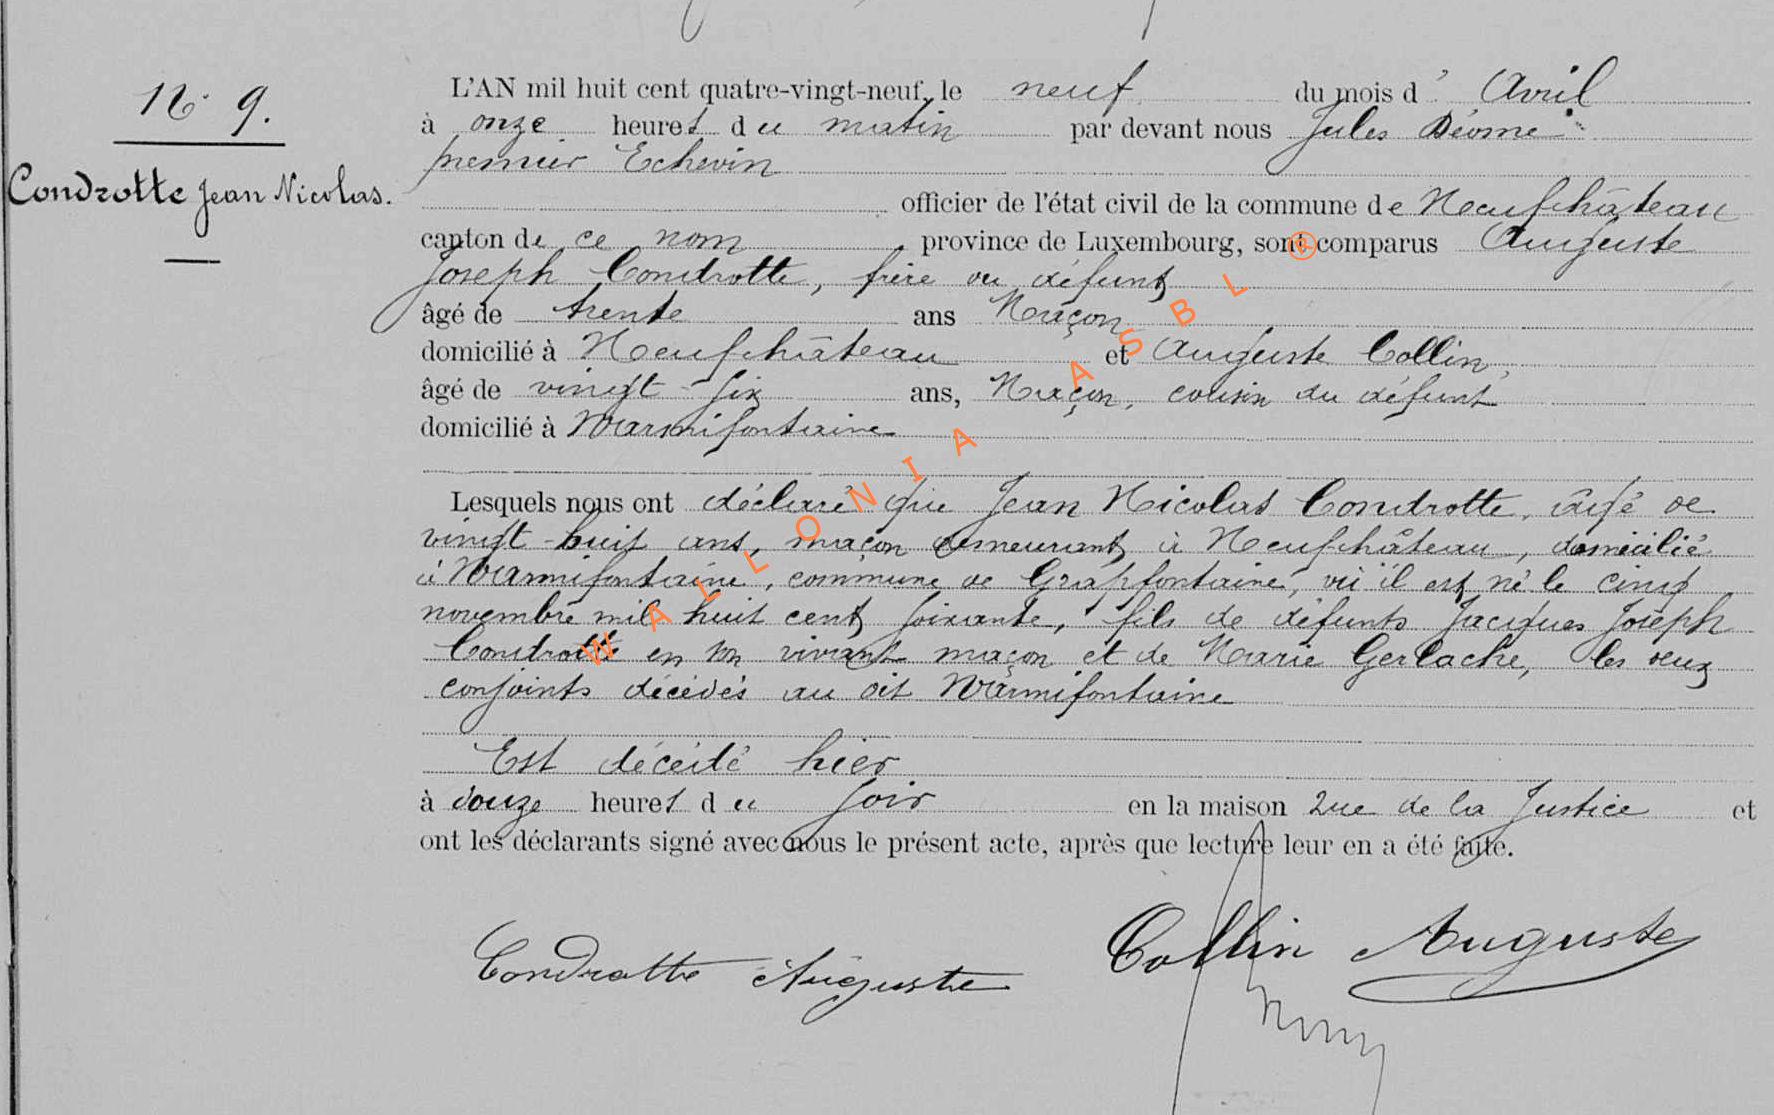 N° 9.
Condrotte Jean Nicolas.
L'AN mil huit cent quatre-vingt-neuf, le neuf du mois d' Avril
à onze heures du matin par devant nous Jules Déome
premier Echevin
officier de l'état civil de la commune de Neufchâteau
canton de ce nom province de Luxembourg, sont comparus Auguste
Joseph Condrotte, frère du défunt
âgé de trente ans Maçon
domicilié à Neufchâteau et Auguste Collin,
âgé de vingt-six ans, Maçon, cousin du défunt
domicilié à Warmifontaine
Lesquels nous ont déclaré que Jean Nicolas Condrotte, âgé de
vingt-huit ans, maçon demeurant à Neufchâteau, domicilié
à Warmifontaine, commune de Grapfontaine, où il est né le cinq
novembre mil huit cent soixante, fils de défunts Jacques Joseph
Condrotte en son vivant maçon et de Marie Gerlache, les deux
conjoints décédés au dit Warmifontaine
Est décédé hier
à douze heures du soir en la maison rue de la Justice et
ont les déclarants signé avec nous le présent acte, après que lecture leur en a été faite.
Condrotte Auguste
Collin Auguste
WALLONIA ASBL ®